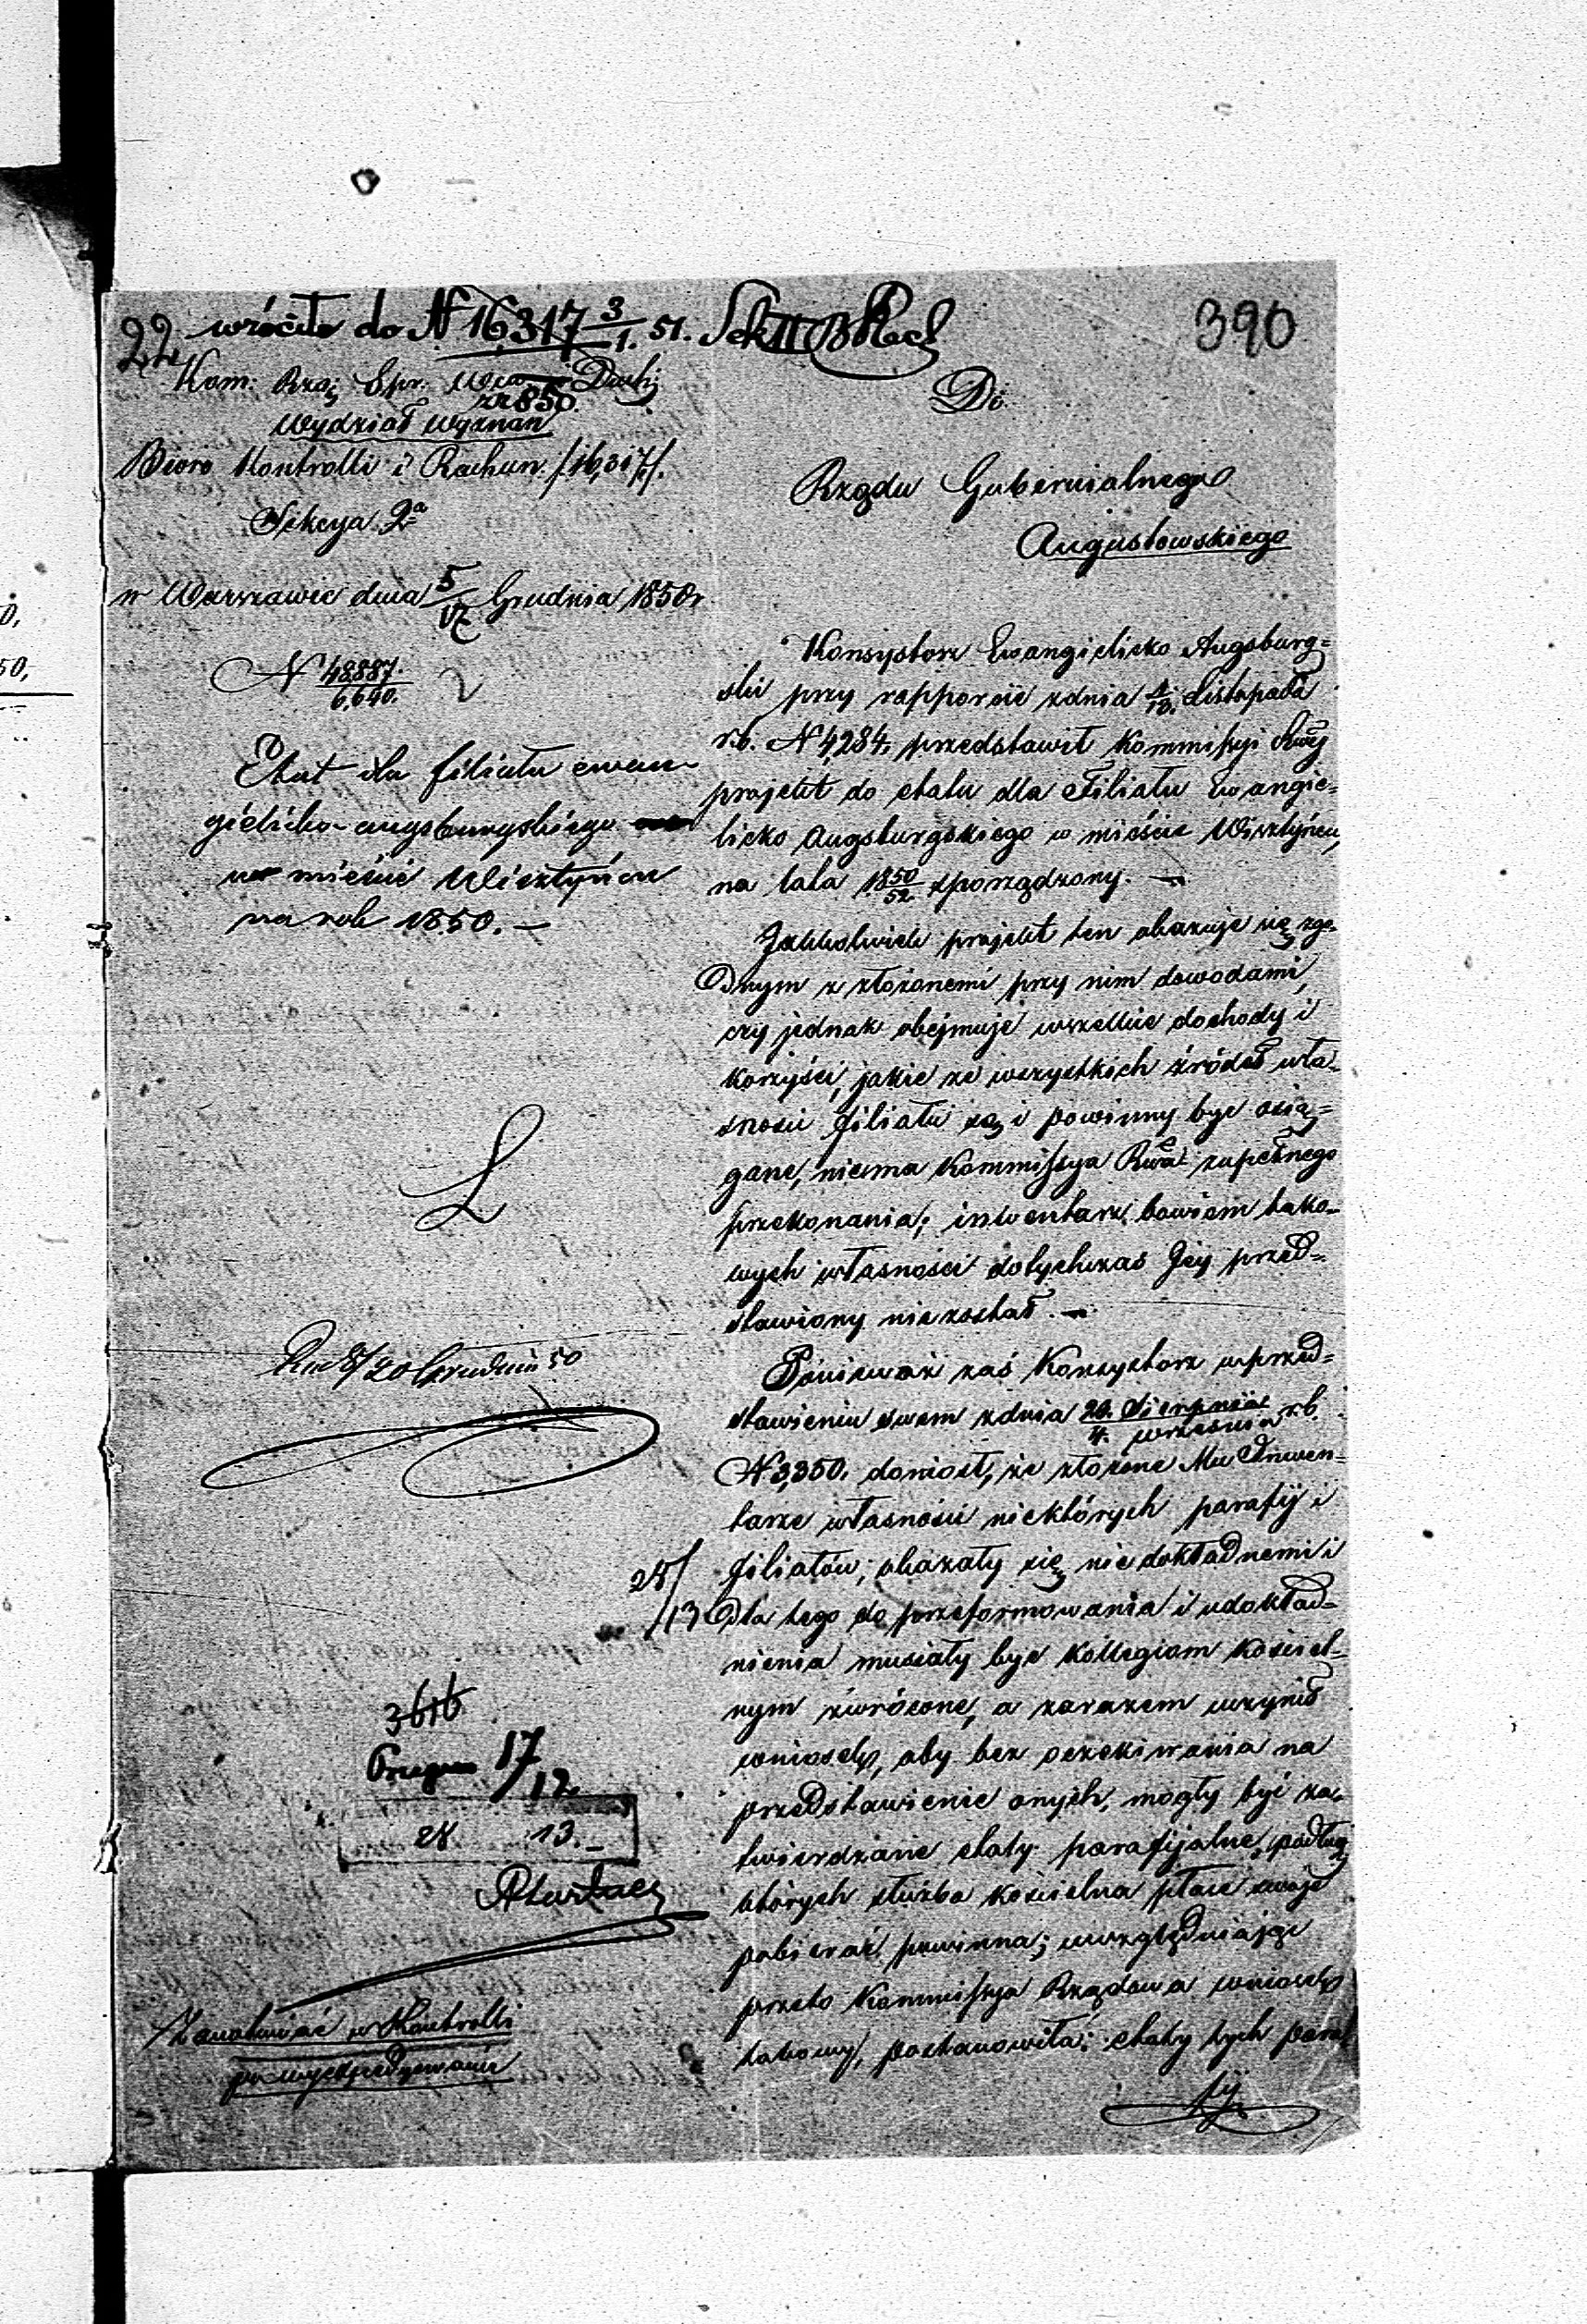 390
22 wróciło do N 16,317 3/1. 51. Sek II B Rach
Kom: Rząd. Spr: Wew. i Duch:
za 850.
Wydział Wyznań
Bióro Kontrolli i Rachun. /16,317/.
Sekcya 2a
w Warszawie dnia 5/17 Grudnia 1850 r
N 48887./6,640.
Etat dla filiału ewan-
gielicko-augsburgskiego
w mieście Wisztyńcu
na rok 1850. —
8/20 Grudnia 50
3616
17/12
28 13. —
Zanotować w Kontrolli
po wyexpedyowaniu
Do
Rządu Gubernialnego
Augustowskiego
Konsystorz Ewangielicko Augsburg=
ski przy rapporcie z dnia 1/13. Listopada
r.b. N 4,284, przedstawił Kommissyi Rwéy
projekt do etatu dla Filiału Ewangie=
licko Augsburgskiego w mieście Wisztyńcu,
na lata 1850/52 sporządzony. —
Jakkolwiek projekt ten okazuje się zgo-
dnym z złożonemi przy nim dowodami,
czy jednak obejmuje wszelkie dochody i
korzyści, jakie ze wszystkich źródeł wła-
sności filiału są i powinny być osią=
gane, niema Kommissya Rwa zupełnego
przekonania; inwentarz bowiem tako-
wych własności dotychczas Jey przed=
stawiony nie został. —
Ponieważ zaś Konsystorz w przed=
stawieniu swem z dnia 23. Sierpnia/4. września r.b.
N 3,350. doniósł, że złożone Mu Inwen=
tarze własności niektórych parafij i
filiałów, okazały się niedokładnemi i
28/13 dla tego do przeformowania i udokład=
nienia musiały być Kollegiom Kościel=
nym zwrócone, a zarazem uczynił
wniosek, aby bez oczekiwania na
przedstawienie onych, mogły być za-
twierdzane etaty parafijalne, podług
których służba kościelna płace swoje
pobierać powinna; uwzględniając
przeto Kommissya Rządowa wniosek
takowy, postanowiła: etaty tych para
fij